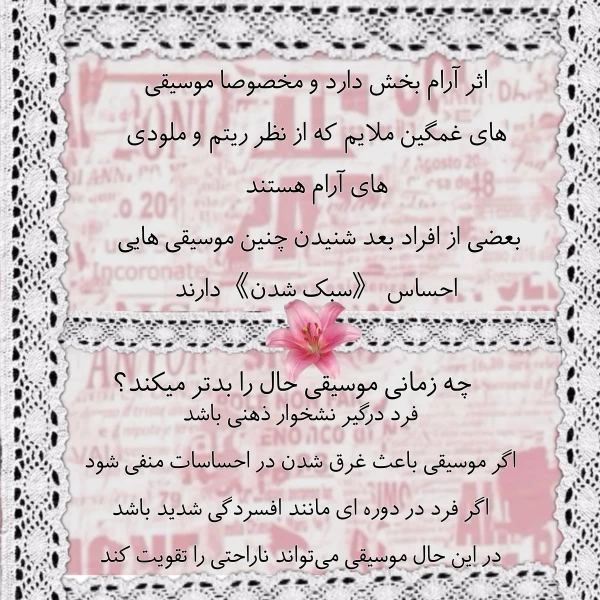 اثر آرام بخش دارد و مخصوصا موسیقی
های غمگین ملایم که از نظر ریتم و ملودی
های آرام هستند
بعضی از افراد بعد شنیدن چنین موسیقی هایی
احساس 《سبک شدن》 دارند
چه زمانی موسیقی حال را بدتر میکند؟
فرد درگیر نشخوار ذهنی باشد
اگر موسیقی باعث غرق شدن در احساسات منفی شود
اگر فرد در دوره ای مانند افسردگی شدید باشد
در این حال موسیقی می‌تواند ناراحتی را تقویت کند